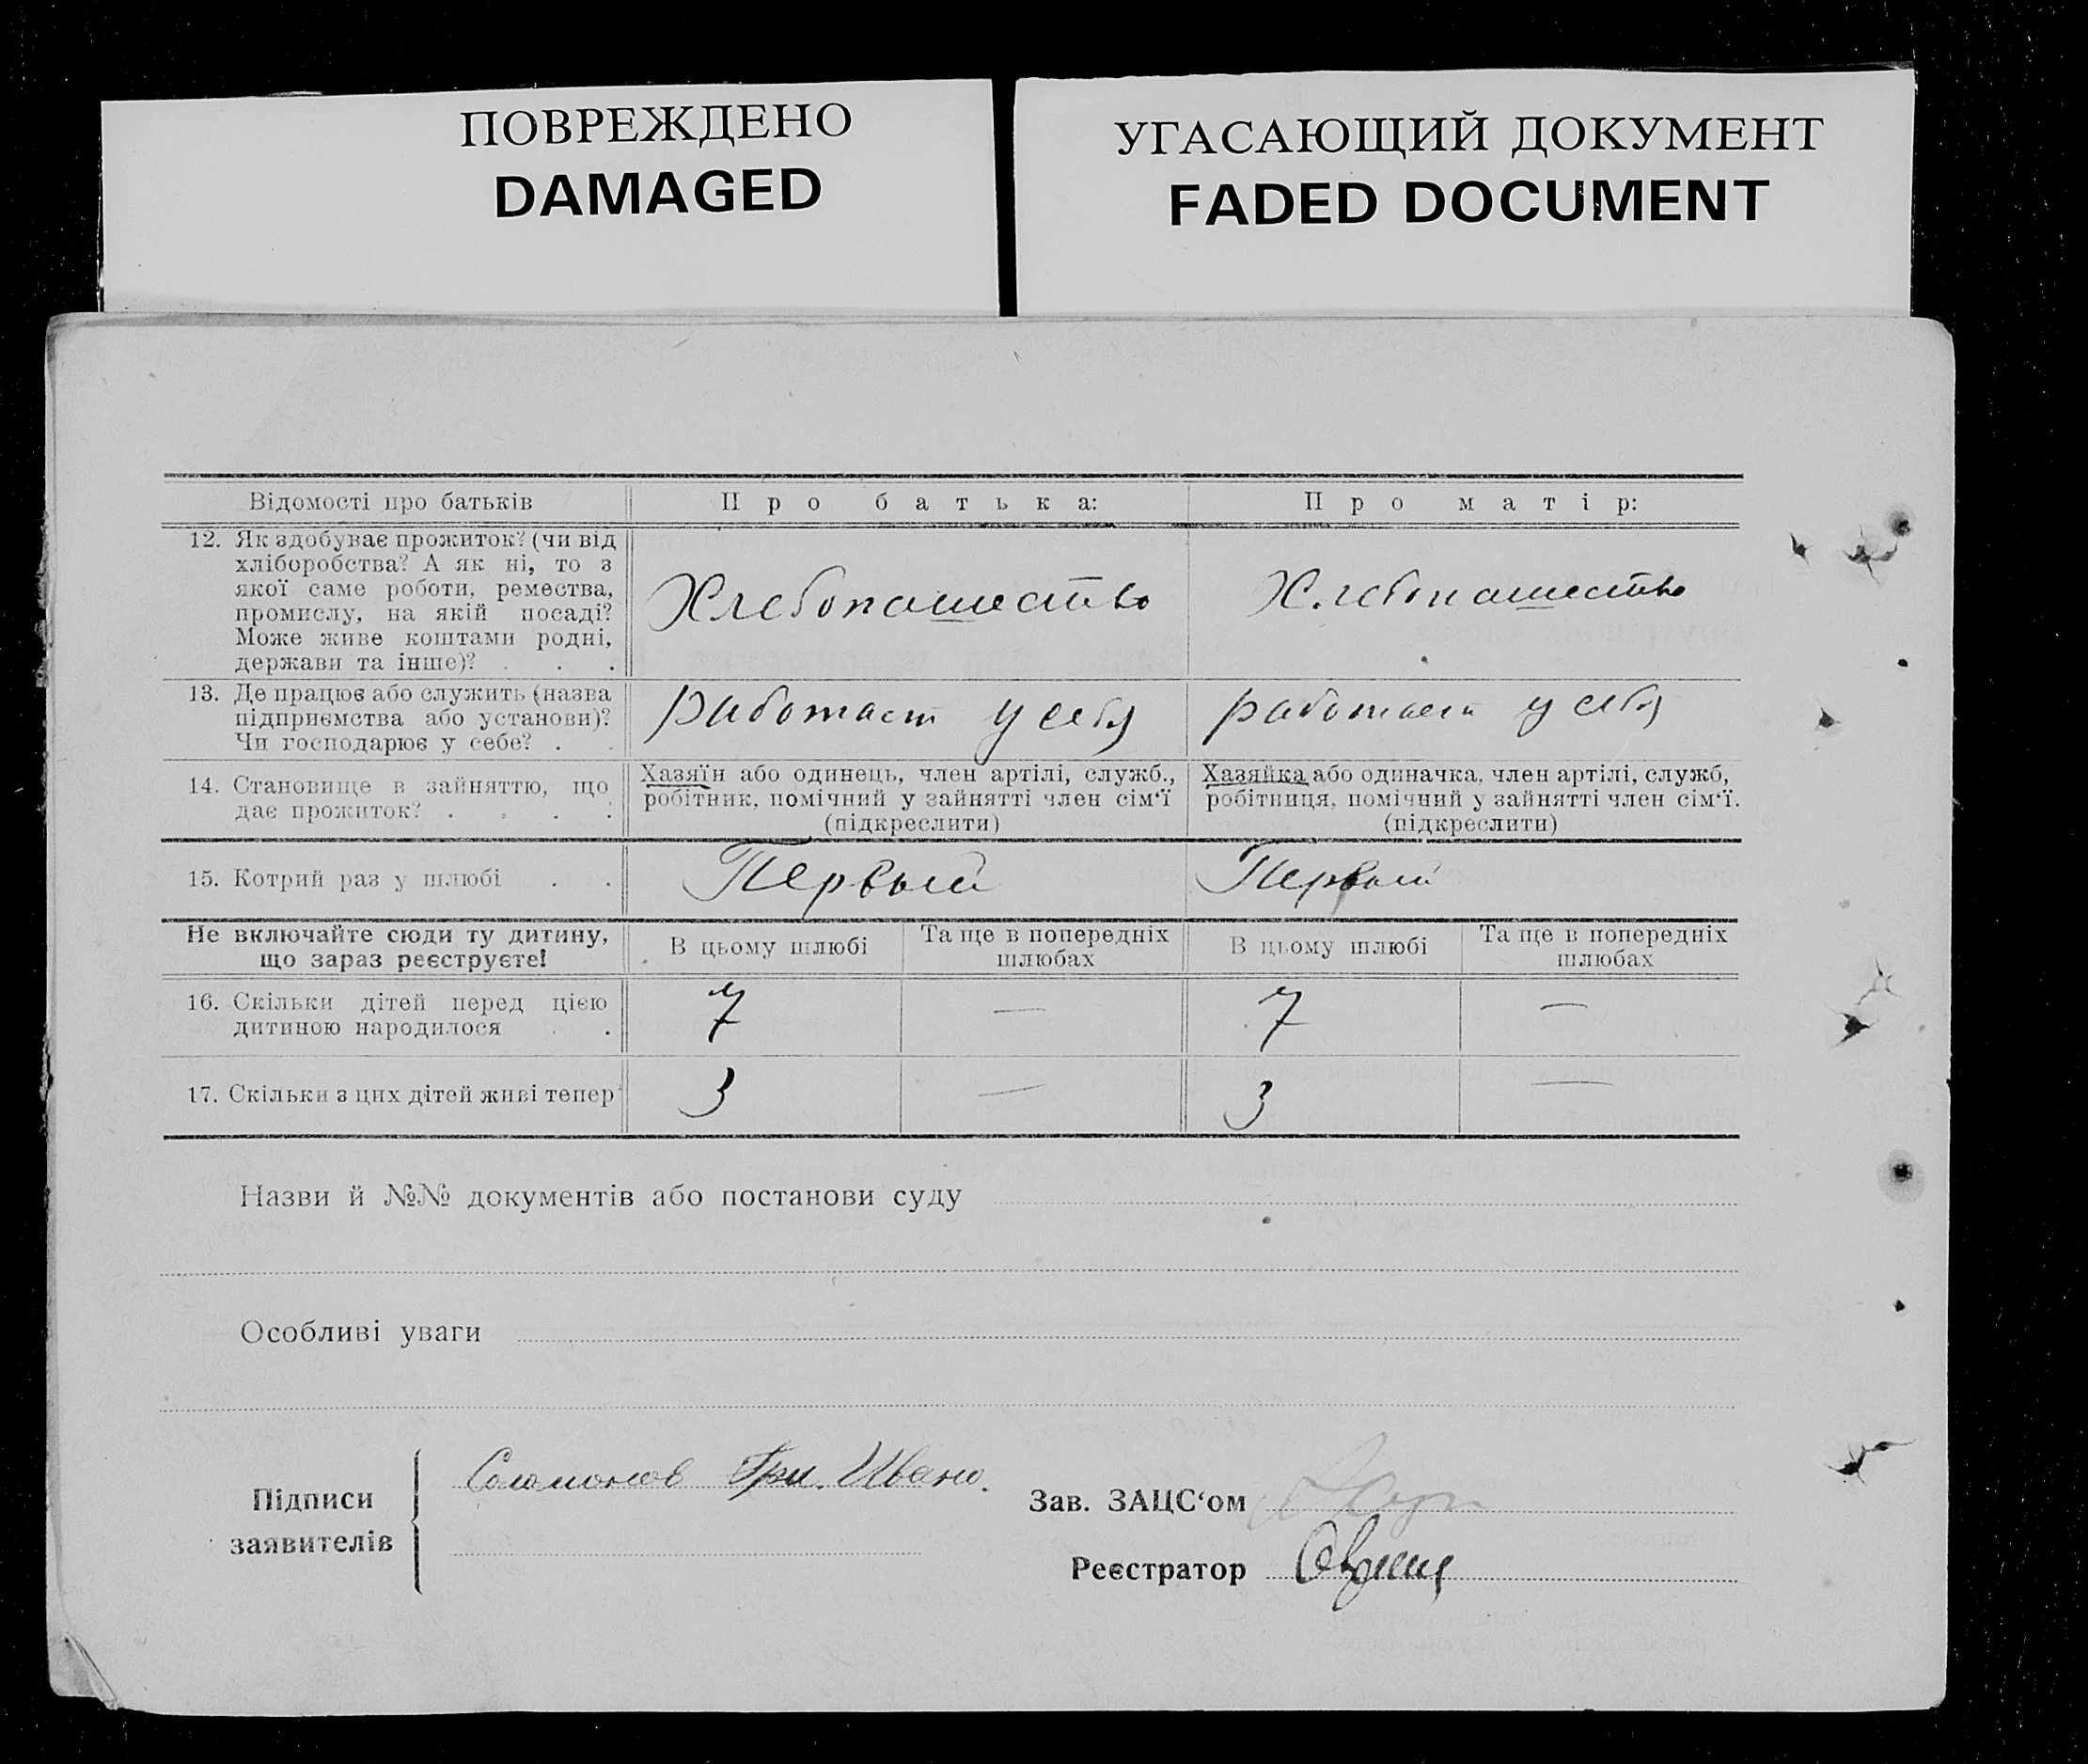 ПОВРЕЖДЕНО
DAMAGED
УГАСАЮЩИЙ ДОКУМЕНТ
FADED DOCUMENT
Відомості про батьків
Про батька:
Про матір:
12. Як здобуває прожиток? (чи від
хліборобства? А як ні, то з
якої саме роботи, ремества,
промислу, на якій посаді?
Може живе коштами родні,
держави та інше)? . . .
Хлебопашество
Хлебопашество
13. Де працює або служить (назва
підприємства або установи)?
Чи господарює у себе? . .
работает у себя
работает у себя
14. Становище в зайняттю, що
дає прожиток? . . . .
Хазяїн або одинець, член артілі, служб.,
робітник, помічний у зайнятті член сім‘ї
(підкреслити)
Хазяйка або одиначка, член артілі, служб,
робітниця, помічний у зайнятті член сім‘ї.
(підкреслити)
15. Котрий раз у шлюбі . .
Первый
Первый
Не включайте сюди ту дитину,
що зараз реєструєте!
В цьому шлюбі
Та ще в попередніх
шлюбах
В цьому шлюбі
Та ще в попередніх
шлюбах
16. Скільки дітей перед цією
дитиною народилося . .
7
—
7
—
17. Скільки з цих дітей живі тепер
3
—
3
—
Назви й №№ документів або постанови суду
Особливі уваги
Підписи
заявителів
Соломонов Гри. Ивано.
Зав. ЗАЦС‘ом
Реєстратор